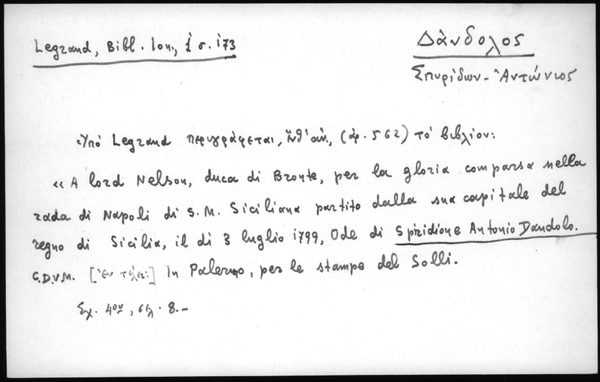 Legrand, Bibl. Ion., 1 σ. 173
Δάνδολος
Σπυρίδων-Ἀντώνιος
Ὑπὸ Legrand περιγράφεται, ἔνθ' ἀν., (ἀρ. 562) τὸ βιβλίον:
« A lord Nelson, duca di Bronte, per la gloria comparsa nella
rada di Napoli di S. M. Siciliana partito dalla sua capitale del
regno di Sicilia, il di 3 luglio 1799, Ode di Spiridione Antonio Dandolo.
C.D.V.M. [ἐν τέλει:] In Palermo, per le stampe del Solli.
Σχ. 4ον, σελ. 8.-